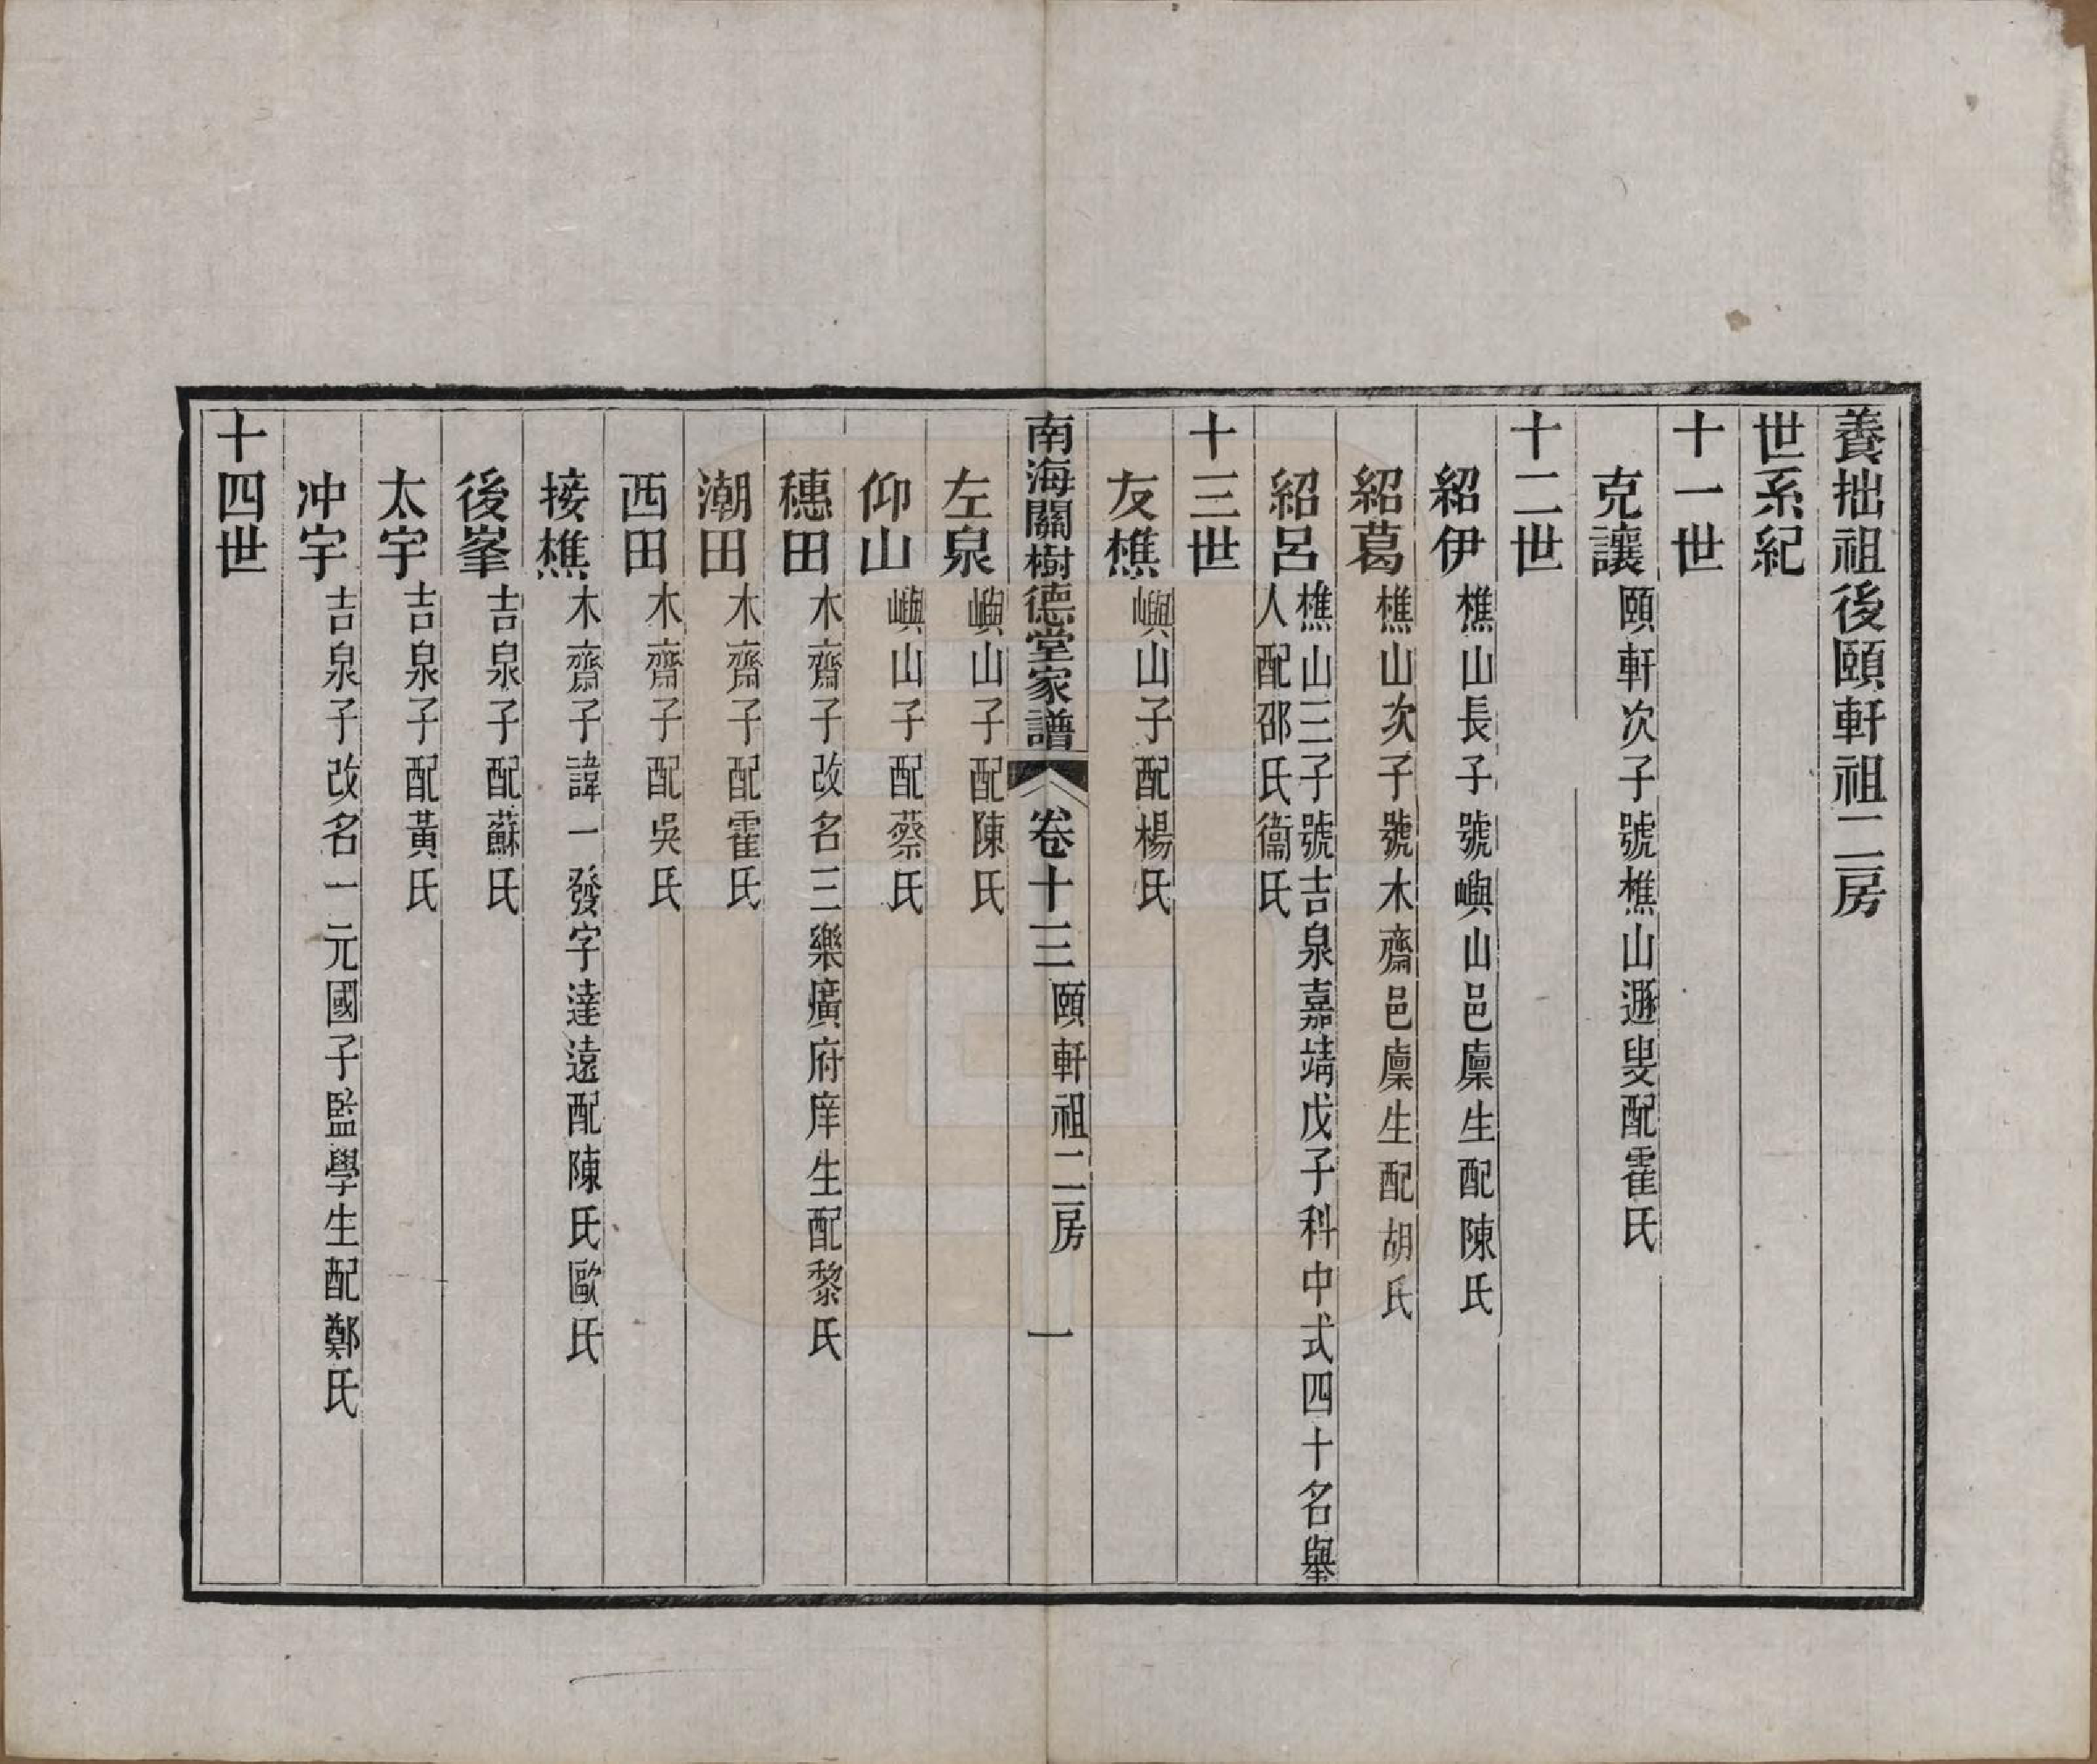 養拙祖後頤軒祖二房
世系紀
十一世
克讓頤軒次子號樵山遯叟配霍氏
十二世
紹伊樵山長子號嶼山邑廩生配陳氏
紹葛樵山次子號木齋邑廩生配胡氏
紹呂樵山三子號吉泉嘉靖戊子科中式四十名舉
人配邵氏衞氏
十三世
友樵嶼山子配楊氏
南海關樹德堂家譜 卷十三 頤軒祖二房 一
左泉嶼山子配陳氏
仰山嶼山子配蔡氏
穗田木齋子改名三樂廣府庠生配黎氏
潮田木齋子配霍氏
西田木齋子配吳氏
接樵木齋子諱一發字達遠配陳氏歐氏
後峯吉泉子配蘇氏
太宇吉泉子配黃氏
冲宇吉泉子改名一元國子監學生配鄭氏
十四世